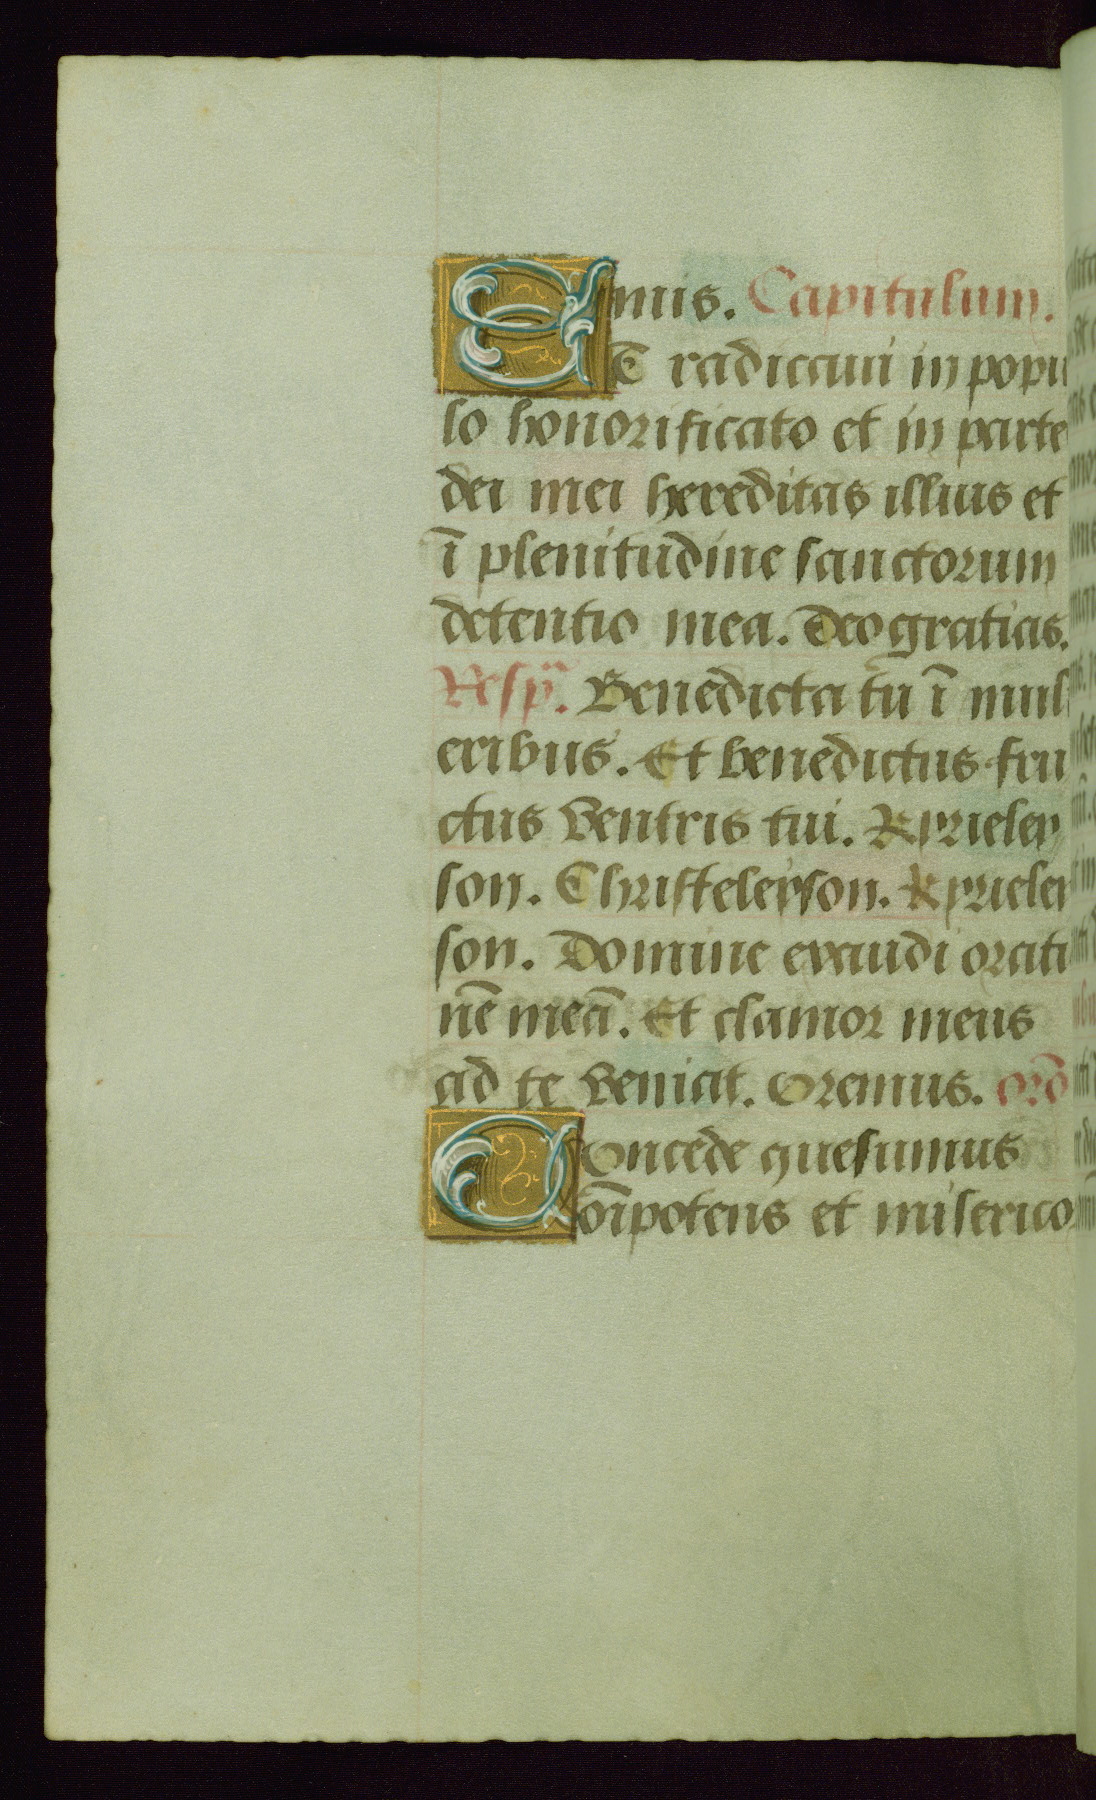 nus. Capitulum.
Et̄ radicaui in popu
lo honorificato et in parte
dei mei hereditas illius et
ī plenitudine sanctorum
detentio mea. Deo gratias.
Resp̄. Benedicta tu ī mul
eribus. Et benedictus fru
ctus ventris tui. Kyrieley
son. Christeleyson. Kyrieley
son. Domine exaudi orati
nē meā. Et clamor meus
ad te veniat. Oremus. orō
Concede quesumus
oīpotens et miserico